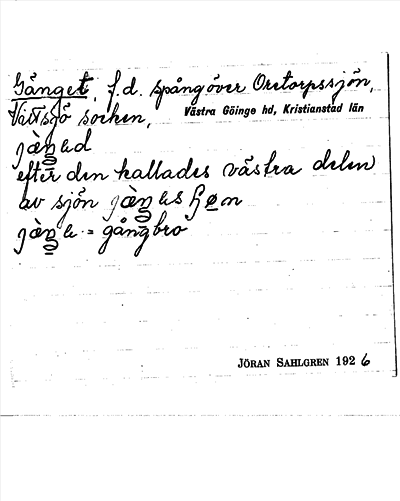 Gånget, f.d. spång över Oretorpssjön,
Vittsjö socken, Västra Göinge hd, Kristianstad län
efter den kallades västra delen
av sjön
= gångbro
JÖRAN SAHLGREN 1926